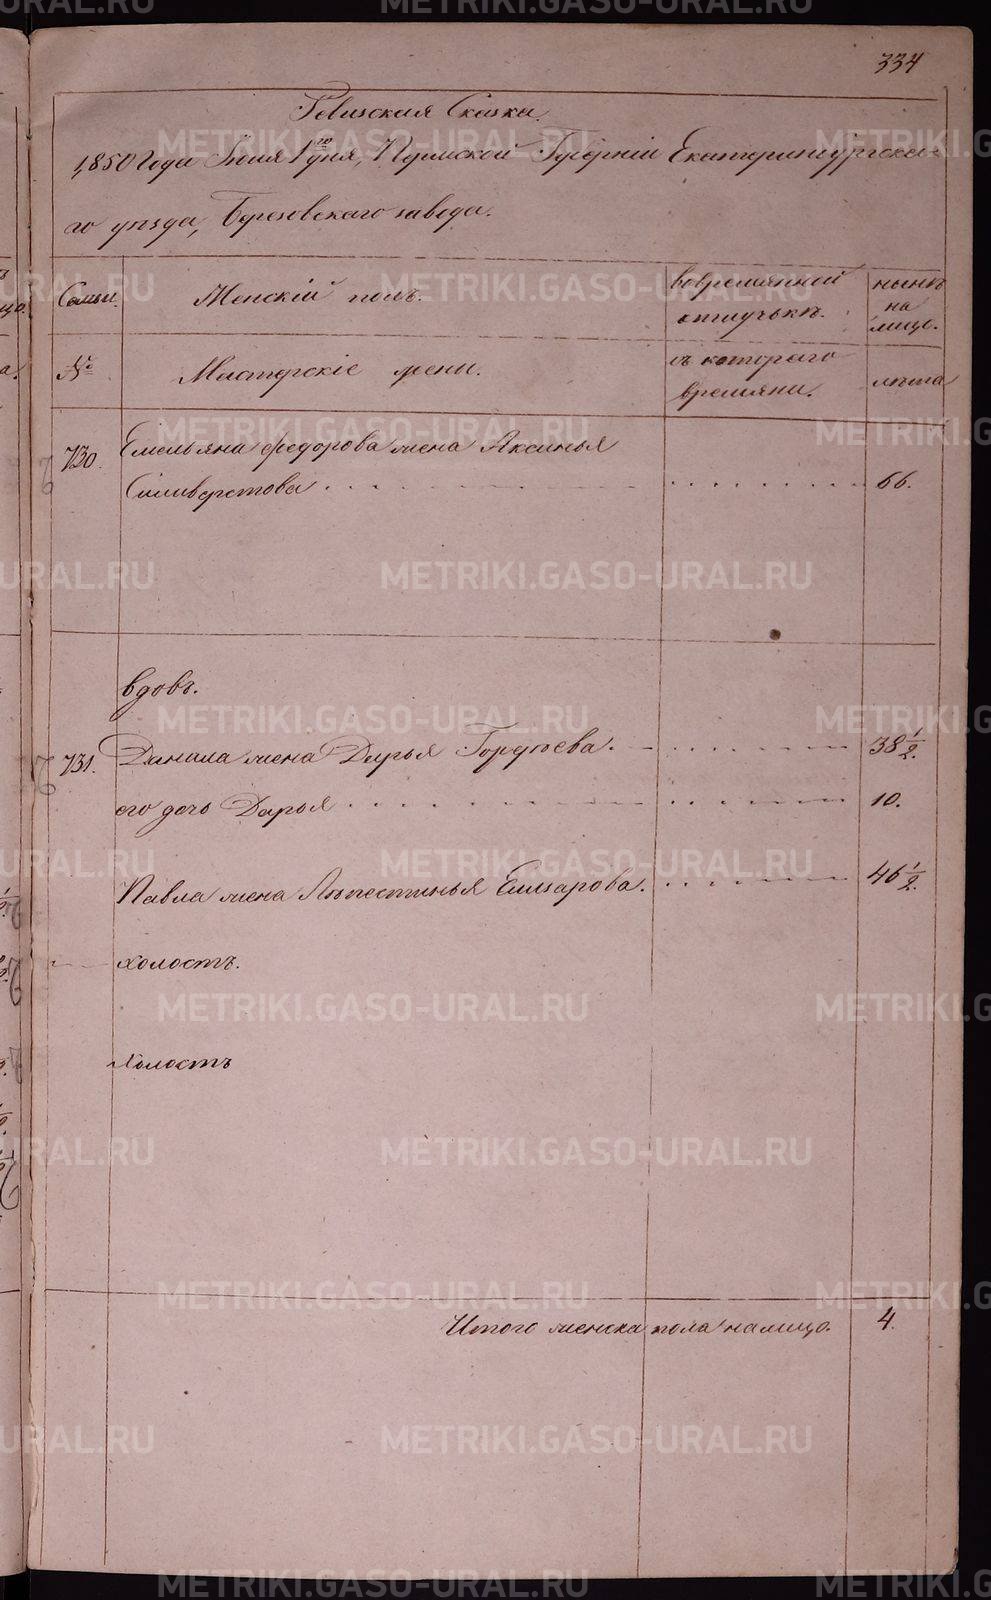 334
Ревизская Сказка.
1850 года Июня 1го дня, Пермской Губернiи Екатеринбургска-
го уезда, Березовскаго завода.
Семьи. Женскiй полъ. вовремянной ныне
отлучьке. на
лицо.
№ Мастерскiе жены. съ котораго лета
времяни.
730. Емельяна Федорова жена Аксинья
Силиверстова 66.
вдовъ.
731. Данила жена Дарья Гордеева. 38 1/2.
его дочь Дарья 10.
Павла жена Елизарова. 46 1/2.
холостъ.
Холостъ
Итого женска пола налицо. 4.
METRIKI.GASO-URAL.RU